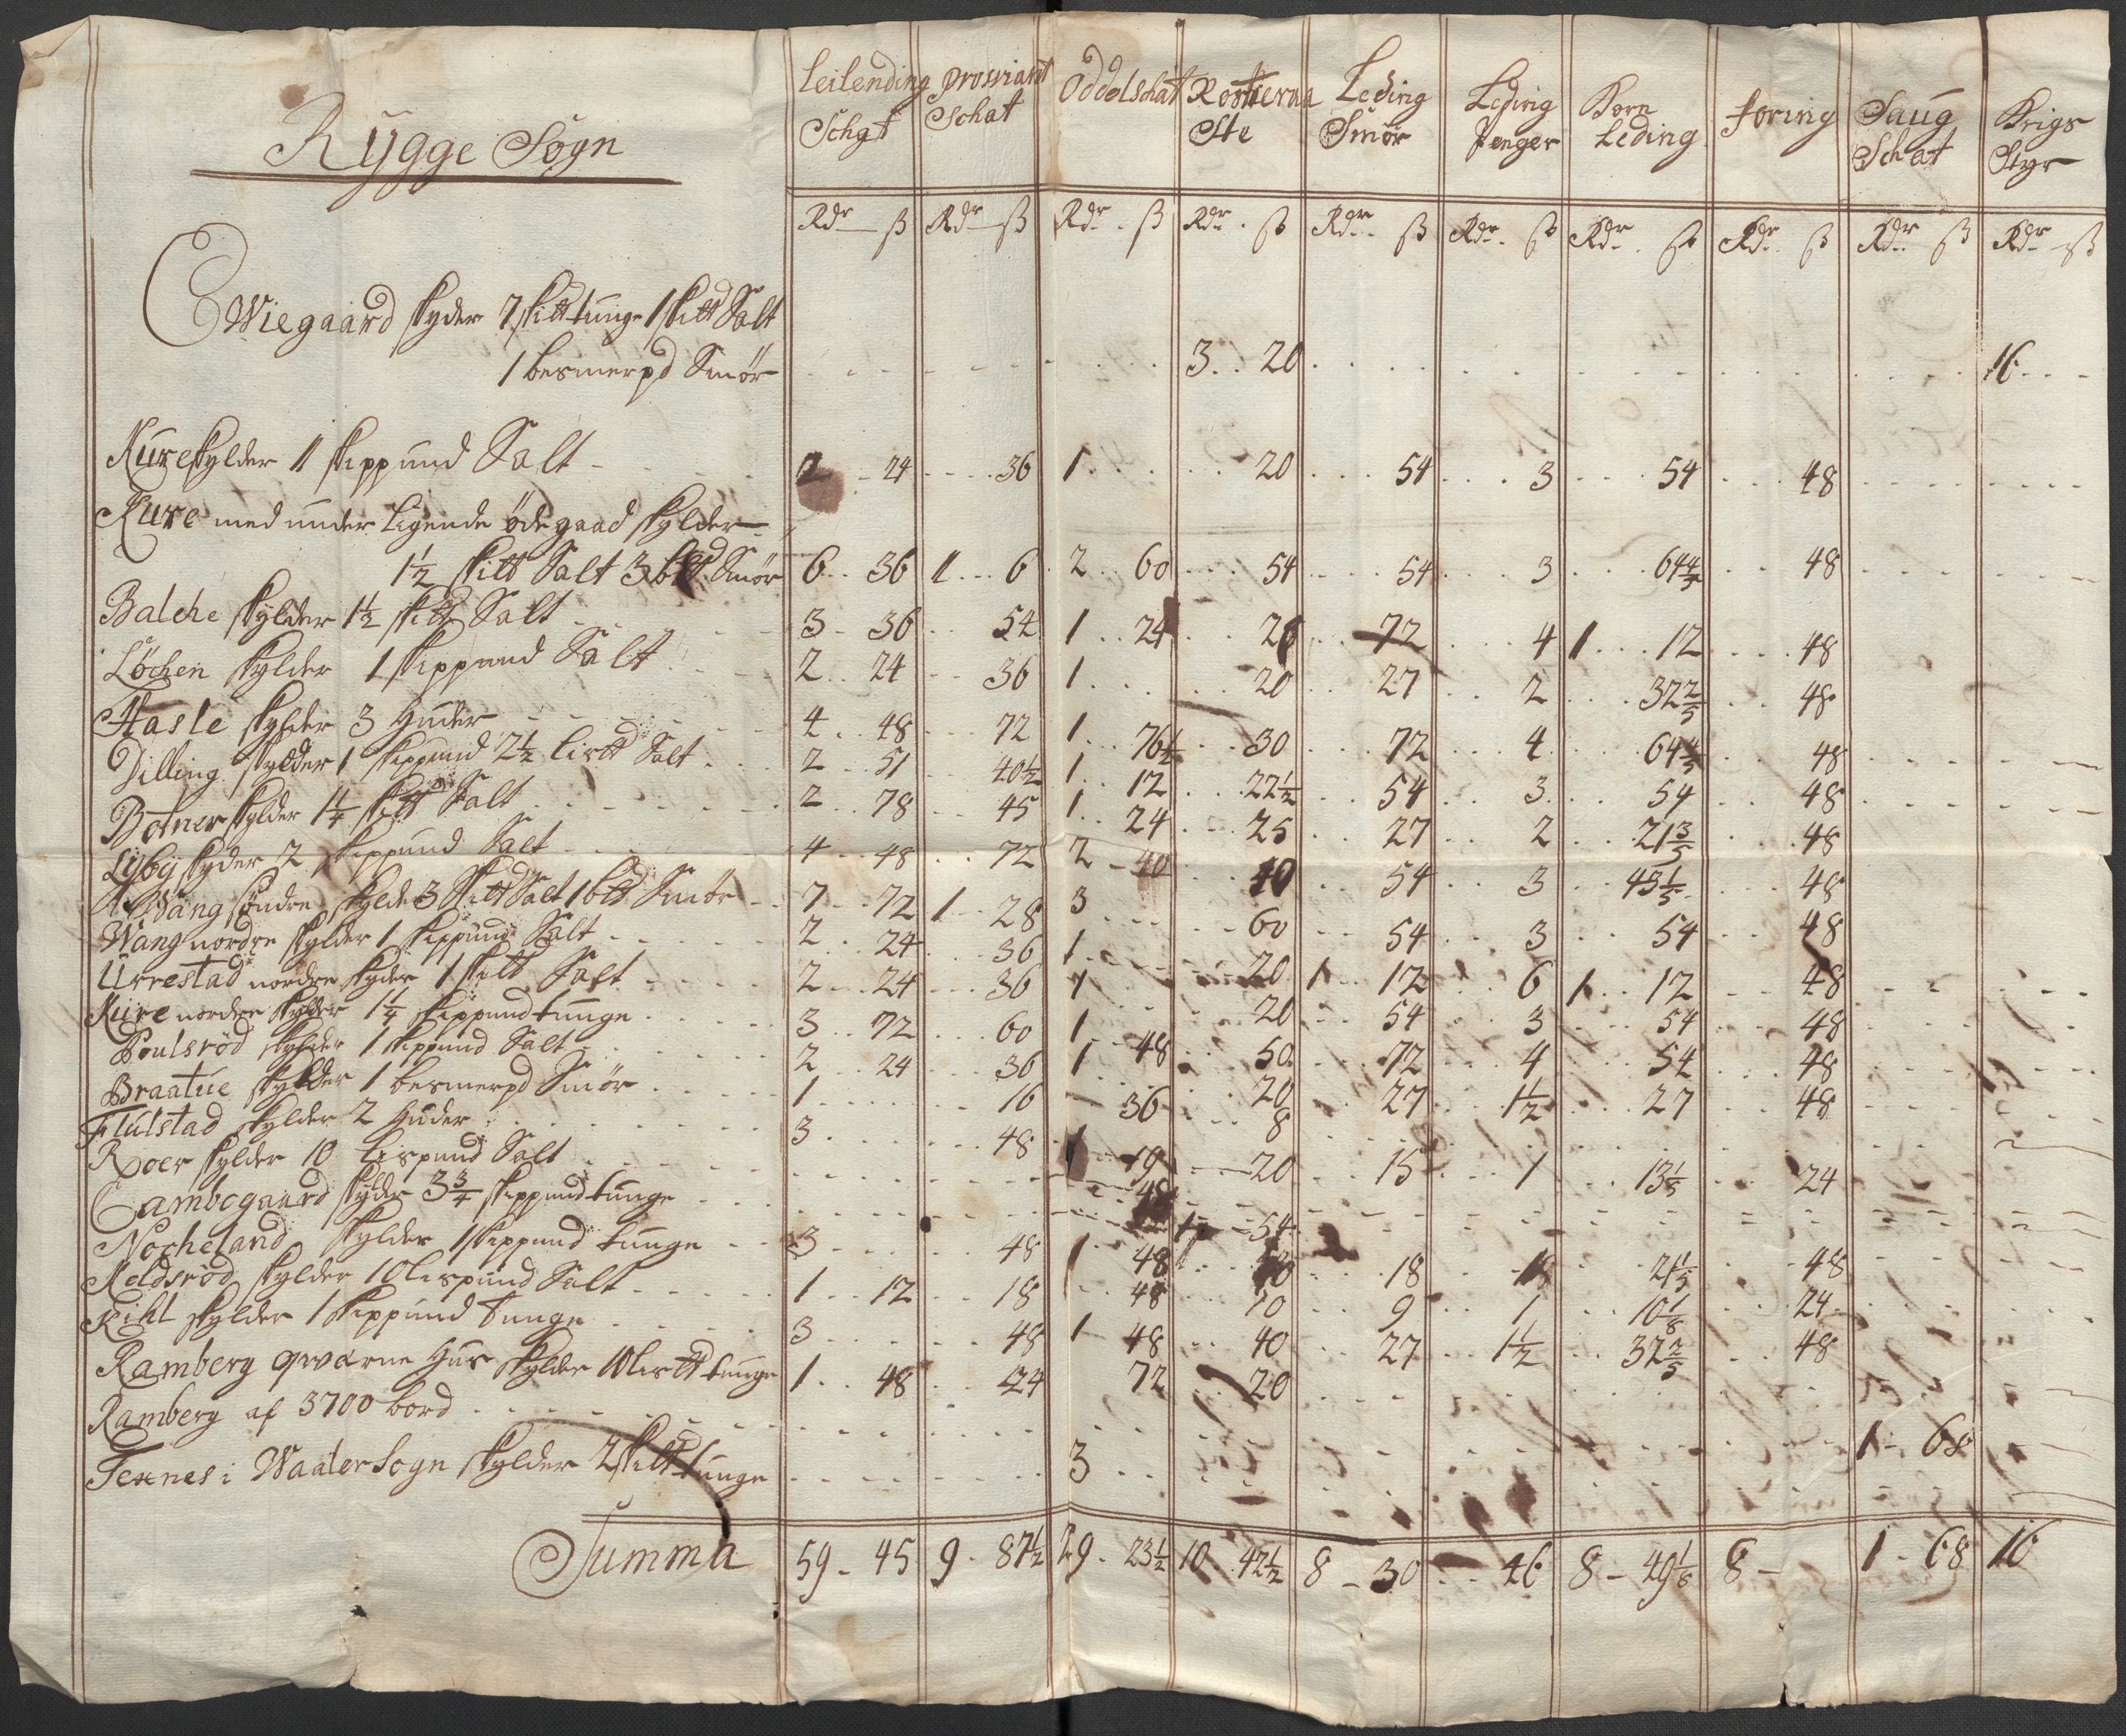 Rygge Sogn
Leilending Schat | Proviant Schat | Oddelschat | Rostieneste | Leding Smör | Leding Penger | Korn Leding | Foring | Saug Schat | Krigs Styr
Rdr ß | Rdr ß | Rdr ß | Rdr ß | Rdr ß | Rdr ß | Rdr ß | Rdr ß | Rdr ß | Rdr ß
Ewiegaard skyder 7 skittunge 1 skitt Salt
1 besmerpd Smör | 3 .. 20 | 16
Kure skylder 1 skippund Salt | 2 - 24 | 36 | 1 | 20 | 54 | 3 | 54 | 48
Kure med under ligende ödegaad skylder
1½ skitt Salt 3 Smör | 6 .. 36 | 1 .. 6 | 2 .. 60 | 54 | 54 | 3 | 64 4/5 | 48
Balche skylder 1½ skitt Salt | 3 - 36 | 54 | 1 .. 24 | 20 | 72 | 4 | 1 .. 12 | 48
Löchen skylder 1 skippund Salt | 2 .. 24 | 36 | 1 | 20 | 27 | 2 | 32 2/5 | 48
Hasle skylder 3 Huder | 4 .. 48 | 72 | 1 .. 76½ | 30 | 72 | 4 | 64 4/5 | 48
Dilling skylder 1 skippund 2½ listt Salt | 2 .. 51 | 40½ | 1 .. 12 | 22½ | 54 | 3 | 54 | 48
Botner skylder 1¼ skitt Salt | 2 .. 78 | 45 | 1 .. 24 | 25 | 27 | 2 | 21 3/5 | 48
Lyby skyder 2 skippund Salt | 4 .. 48 | 72 | 2 - 40 | 40 | 54 | 3 | 43 1/5 | 48
Wang söndre skylde 3 skitt Salt 1 Smör | 7 .. 72 | 1 .. 28 | 3 | 60 | 54 | 3 | 54 | 48
Wang nordre skylder 1 skippund Salt | 2 .. 24 | 36 | 1 | 20 | 1 .. 12 | 6 | 1 .. 12 | 48
Urrestad nordre skyder 1 skitt Salt | 2 .. 24 | 36 | 1 | 20 | 54 | 3 | 54 | 48
Kure nordre skylder 1¼ skippund tunge | 3 .. 72 | 60 | 1 .. 48 | 50 | 72 | 4 | 54 | 48
Poulsröd skylder 1 skippund Salt | 2 .. 24 | 36 | 1 | 20 | 27 | 1½ | 27 | 48
Braatue skylder 1 besmerpd Smör | 1 | 16 | 36 | 8
Flulstad skylder 2 Huder | 3 | 48 | 1 .. 19 | 20 | 15 | 1 | 13 1/5 | 24
Roer skylder 10 Lispund Salt | 48
Cambogaard skylder 3¾ skippund tunge | 1 - 54
Nocheland skylder 1 skippund tunge | 3 | 48 | 1 .. 48 | 40 | 18 | 21 1/5 | 48
Keldsröd skylder 10 lispund Salt | 1 .. 12 | 18 | 48 | 10 | 9 | 1 | 10 1/8 | 24
Kihl skylder 1 skippund tunge | 3 | 48 | 1 - 48 | 40 | 27 | 1½ | 32 2/5 | 48
Ramberg qwærne Hus skylder 10 listt tunge | 1 .. 48 | 24 | 72 | 20
Ramberg af 3700 bord | 1 - 68
Texnes i Waaler Sogn skylder 2 skitt tunge | 3
Summa | 59 - 45 | 9 - 87½ | 29 - 23½ | 10 - 42½ | 8 - 30 | 46 | 8 - 49 1/8 | 8 - | 1 - 68 | 16